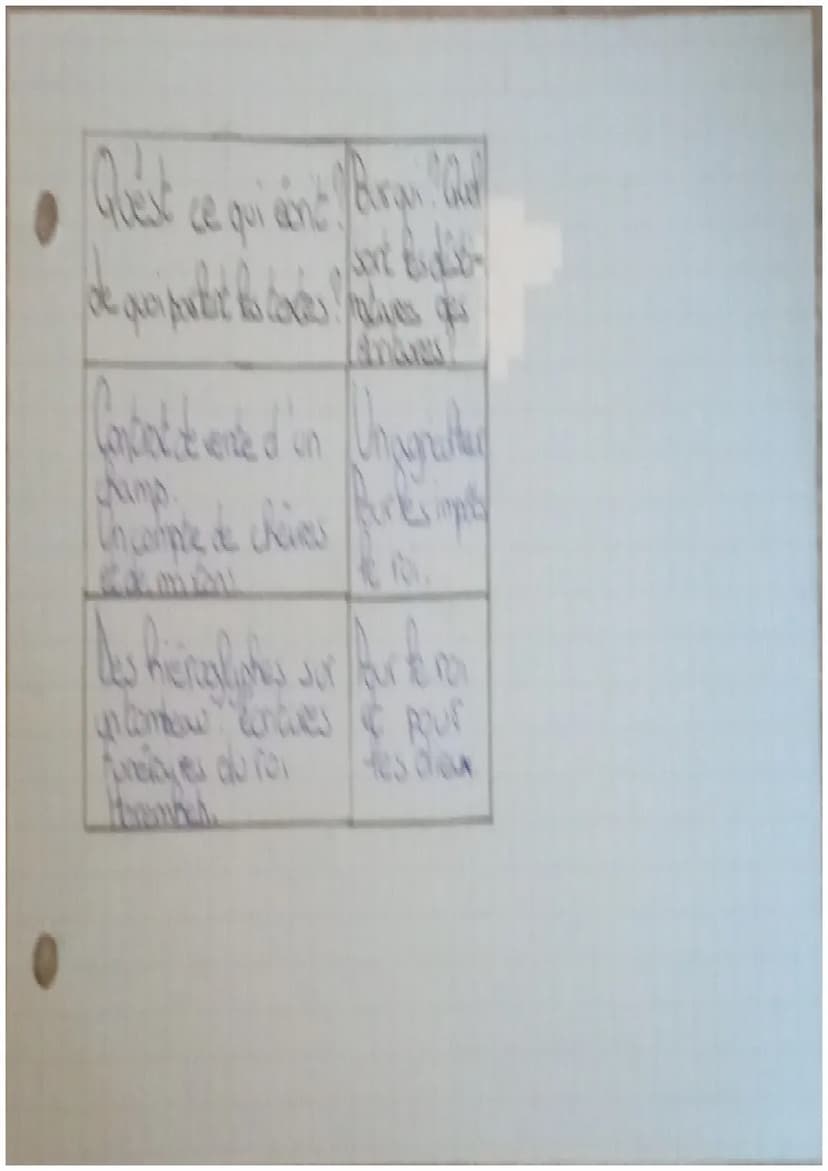 Qu'est ce qui écrit?
de quoi parlent les textes?
Pour qui? Quel
sont les desti-
nataires des
écritures?
Contrat de vente d'un
champ.
Un compte de chèvres
et de
Un agriculteur
Pour les impôts
le roi.
Des hiéroglyphes sur
un tombeau écritures
funéraires du roi
Horemheb.
Pour le roi
et pour
les dieux